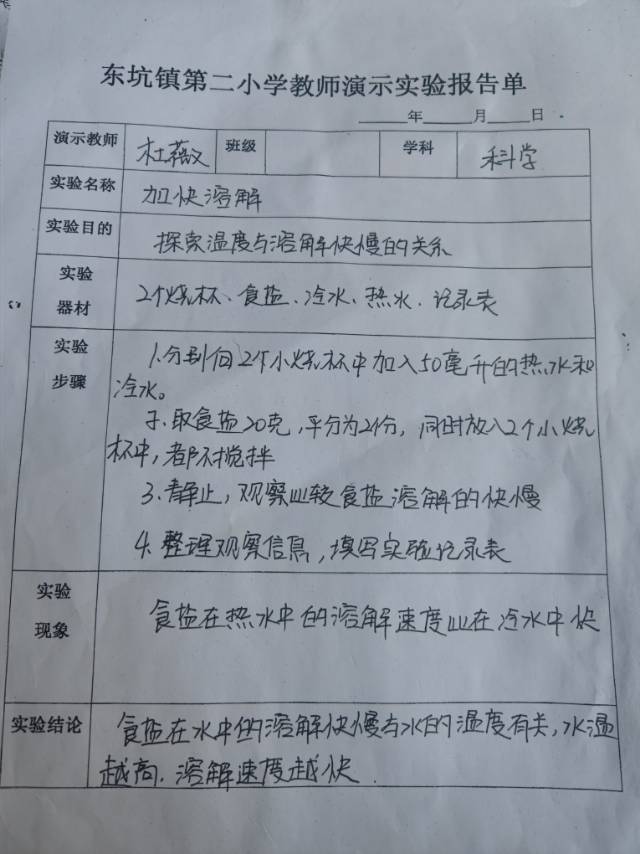 东坑镇第二小学教师演示实验报告单
年 月 日
演示教师 杜薇 班级 学科 科学
实验名称 加快溶解
实验目的 探索温度与溶解快慢的关系
实验器材 2个烧杯、食盐、冷水、热水、记录表
实验步骤 1.分别向2个小烧杯中加入50毫升的热水和
冷水。
2.取食盐20克,平分为2份,同时放入2个小烧
杯中,都不搅拌
3.静止,观察比较食盐溶解的快慢
4.整理观察信息,填写实验记录表
实验现象 食盐在热水中的溶解速度比在冷水中快
实验结论 食盐在水中的溶解快慢与水的温度有关,水温
越高.溶解速度越快.